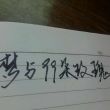 梦与99朵玫瑰